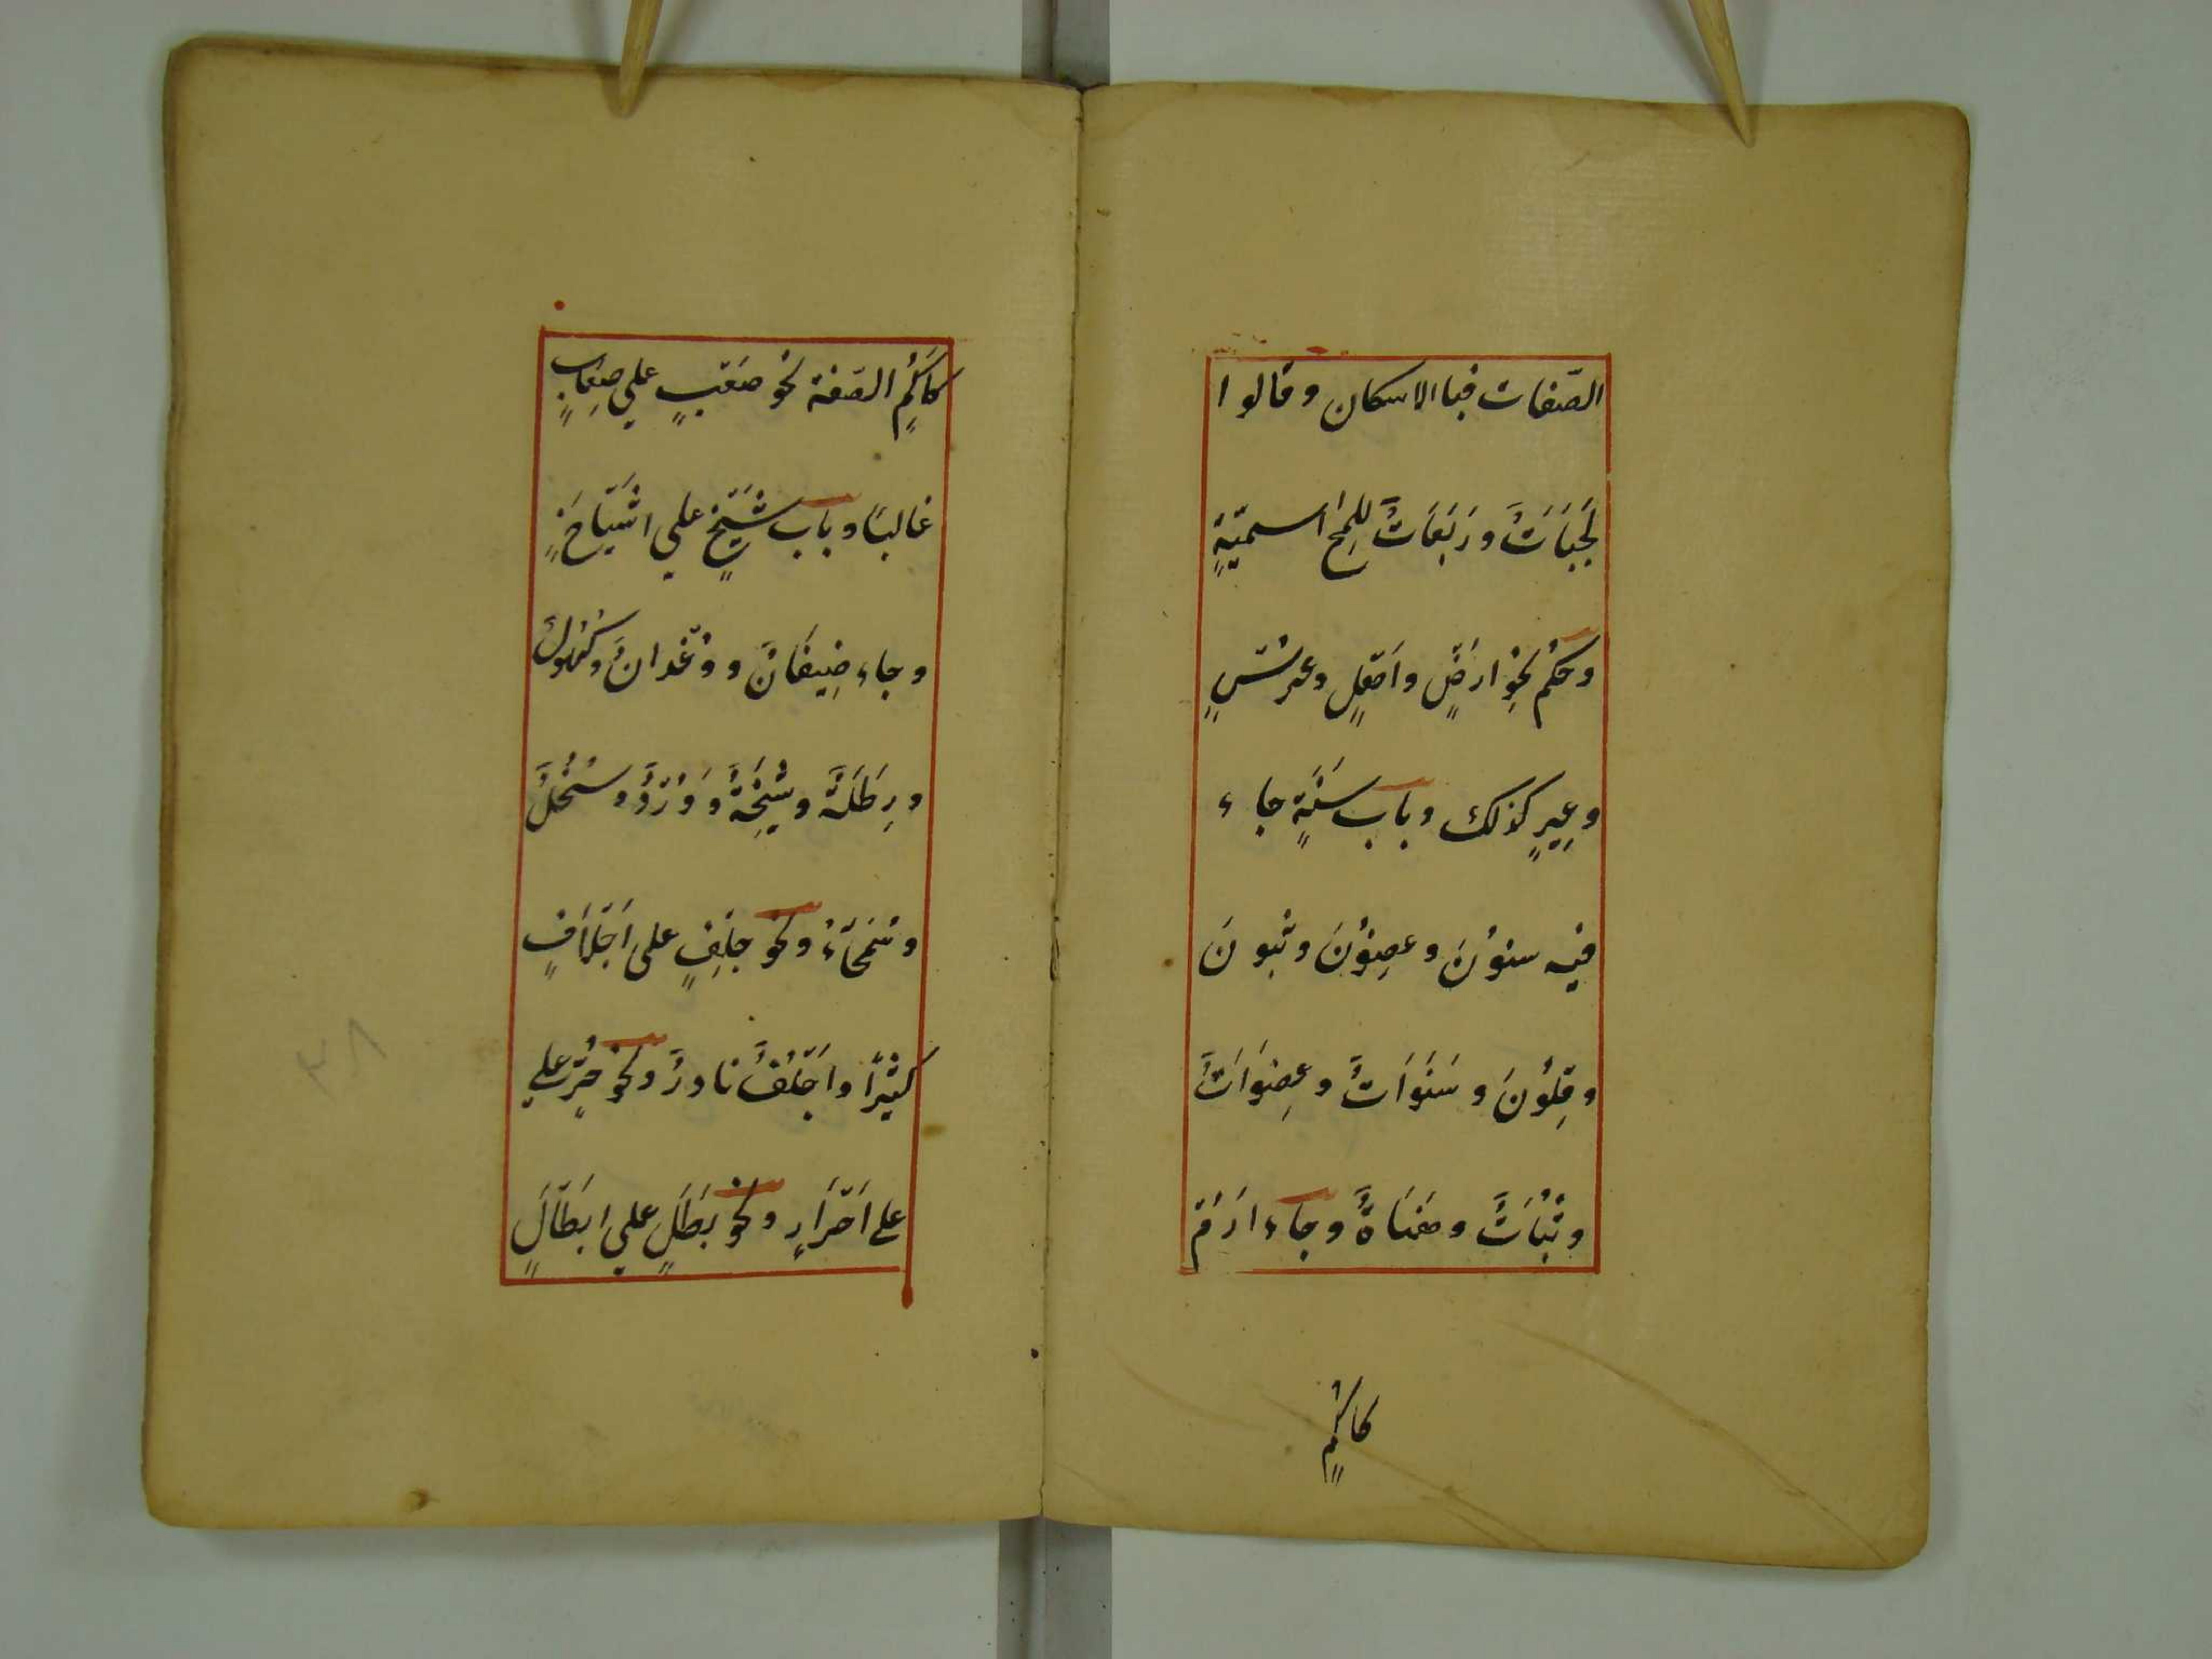 الصّفات فبا الاسكان وقالوا
لَجَبَاتٌ ورَبَعَاتٌ لِلَمْحِ اسميّةٍ
وحكْم نحْوِ ارضٍ واَهْلٍ وعرْسٍ
وعِيرٍ كذلك وباب سَنَةٍ جاء
فيه سنوْنَ وعضِوْنَ وثبونَ
وقِلُونَ وسَنَوَاتٌ وعِضَوَاتٌ
وثُبَاتٌ وهَنَاةٌ وجاء ارَمْ
كاَكُمٍ
كاَكُمٍ الصّفة نحْو صَعْبٍ علي صِعَابٍ
غالبًا وباب شَيْخٍ علي اشْيَاخٍ
وجاء ضِيفَانٌ ووُغْدانٌ وكُهُولٌ
ورِطَلَةٌ وشِيْخَةٌ ووُرْدٌ وسُحُلٌ
وسُمَحَاءُ ونحو جِلْفٍ على اَجْلَافٍ
كثيْرًا واَجْلُفٌ نادرٌ ونحو حُرٍّ علي
علے اَحْرَارٍ ونحو بَطَلٍ علي ابْطَالٍ